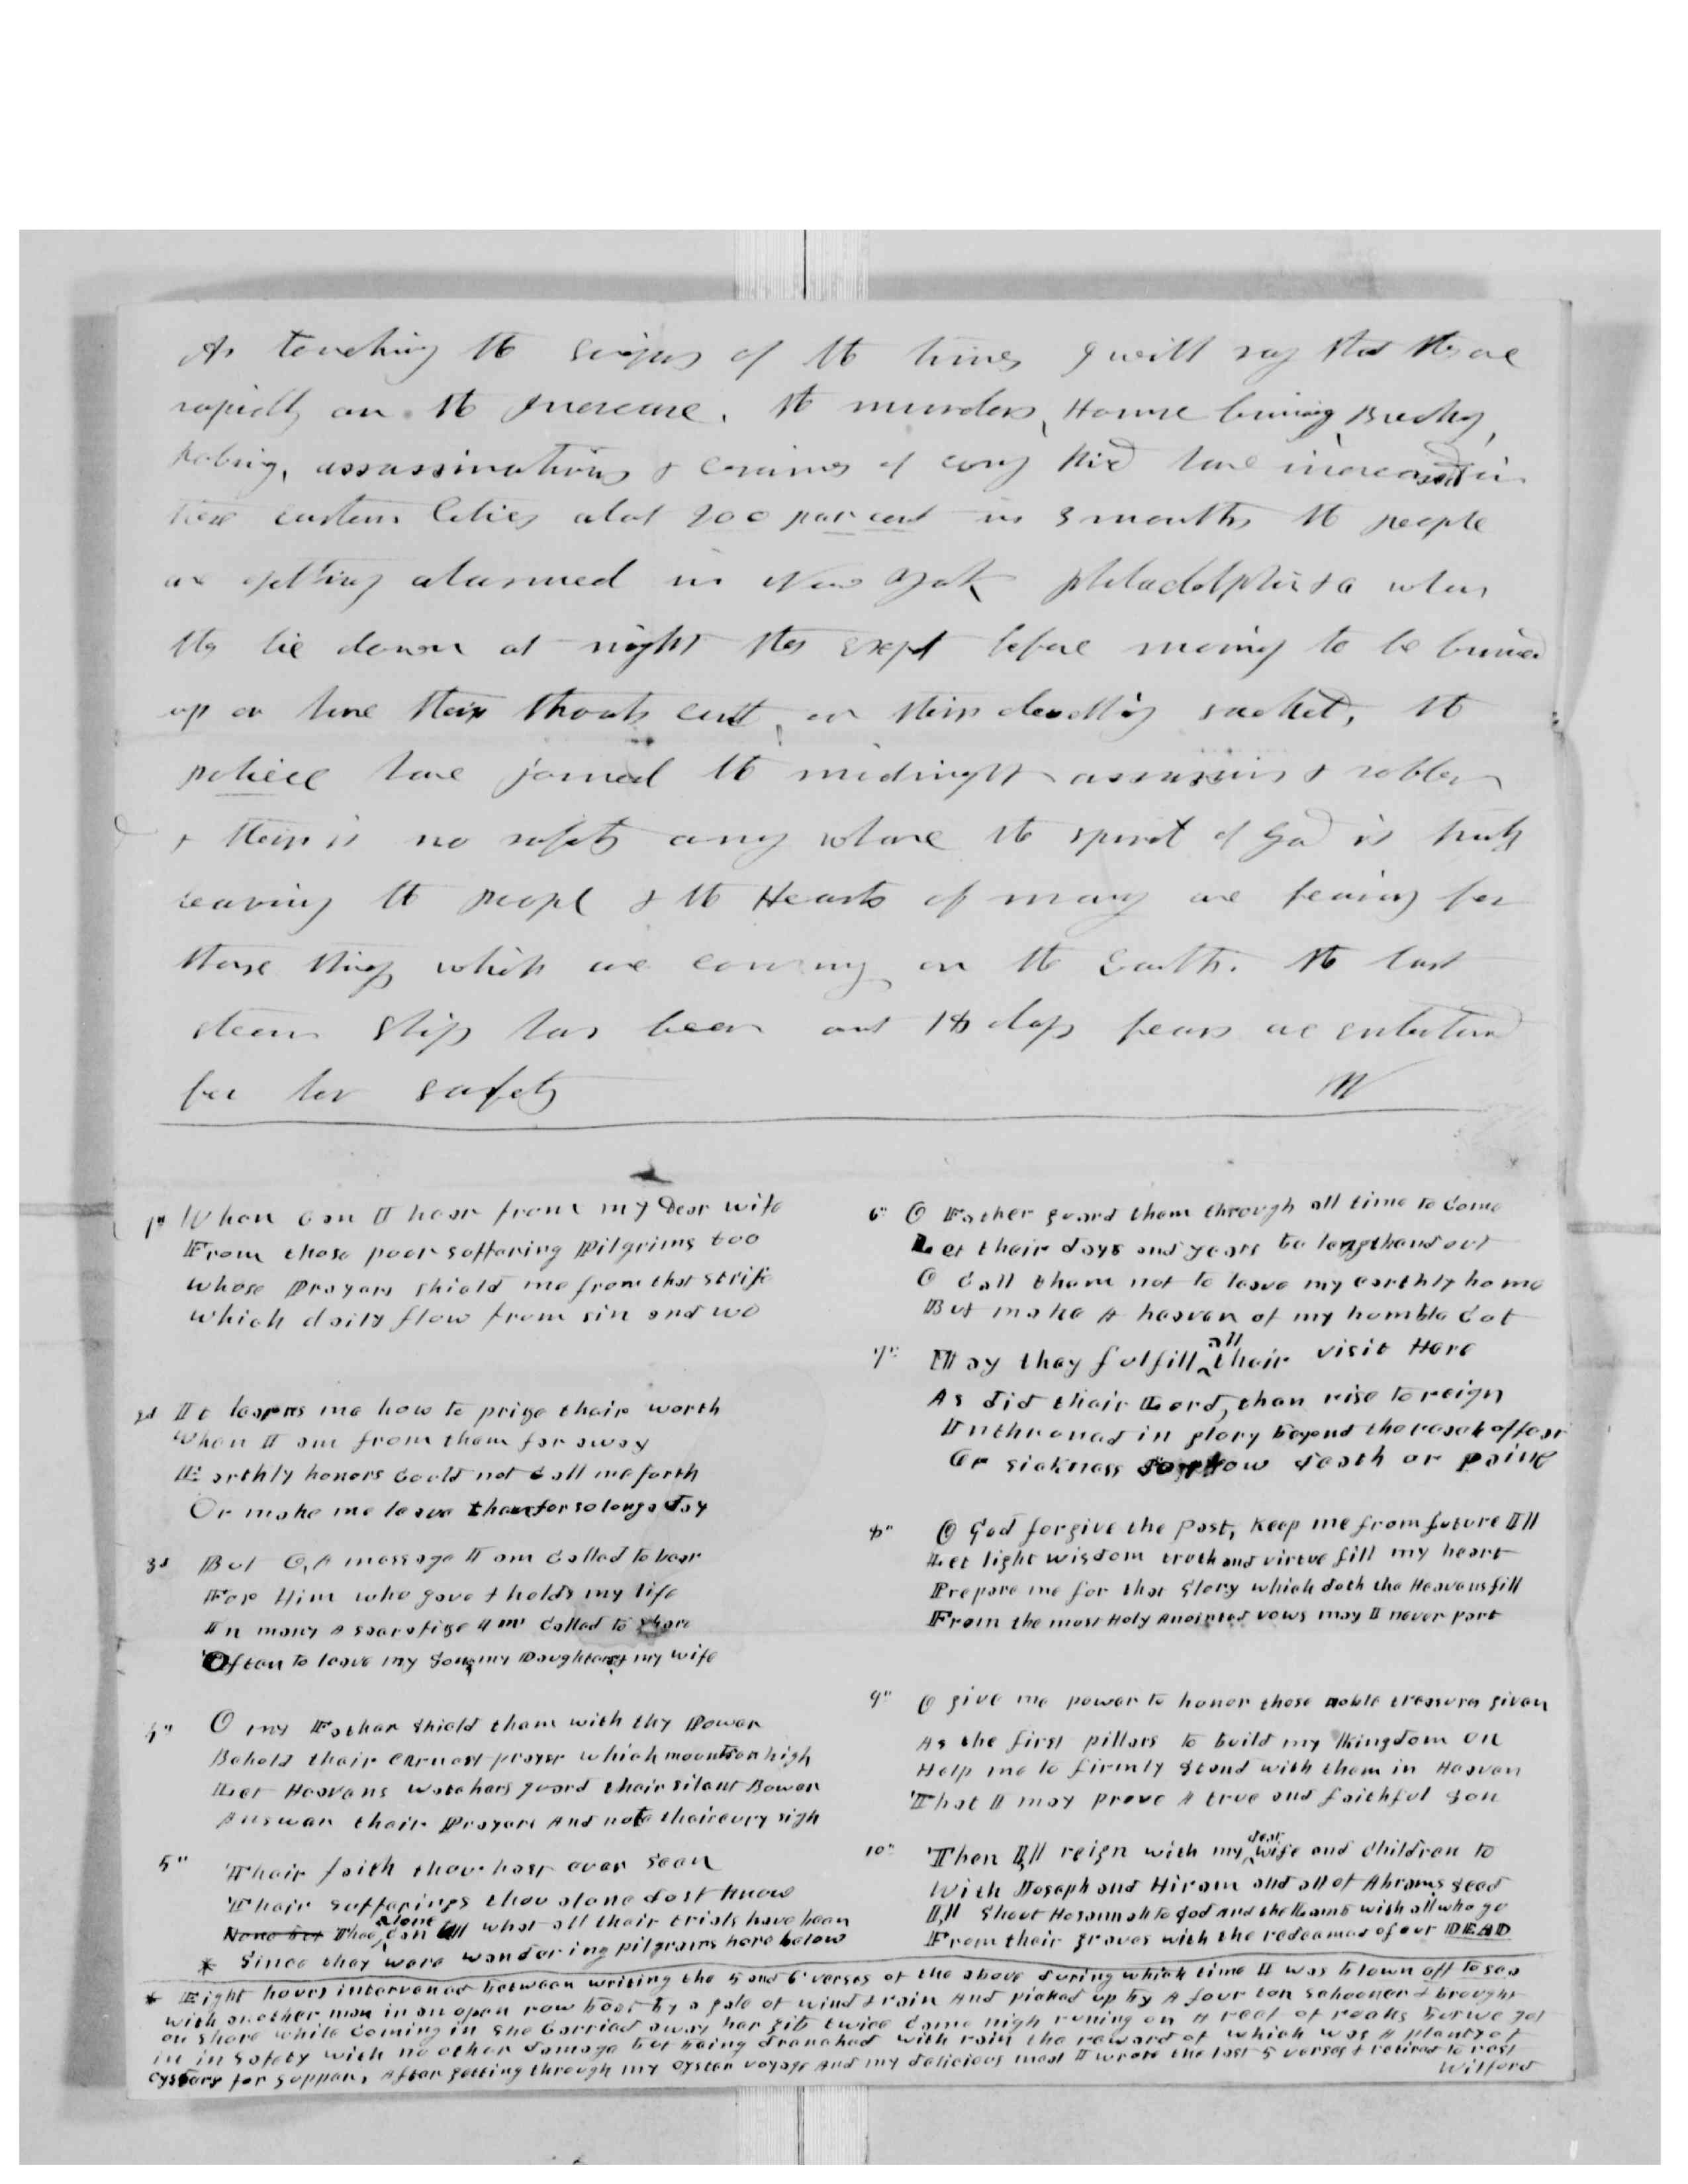 As touching the signs of the times I will say that they are
rapidly on the Increase. the murders, House burning Burning,
Robing, assassinations & Crimes of evry kind have increased in
these eastern Cities about 200 par cent in 3 months the people
are getting alarmed in New York philadelphia & a when
they lie down at night they expet before morning to be burned
up or have their throats cut, or their dwelling sacked, the
poliece have joined the midnight assassins & robbers
& their is no safety any whare the spirit of God is truly
leaving the peopl & the Hearts of many are fearing for
those things which are coming on the Earth. the last
steam ship has been out 18 days fears are entertained
for her safety W
1st When can I hear from my Dear wife
From those poor suffering Pilgrims too
Whose Prayers shield me from that strife
Which daily flow from sin and wo
2d It learns me how to prize their worth
When I am from them far away
Earthly honors Could not Call me forth
Or make me leave them for so long a day
3d But O, A message I am Called to bear
For Him who gave & holds my life
In many A sacrafize I'm Called to share
Often to leave my Sons, my Daughters, & my wife
4" O my Father Shield them with thy Power
Behold their earnest prayer which mounts on high
Let Heavens watchers guard their silent Bower
Answer their Prayers And note their evry sigh
5" Their faith thou hast ever seen
Their sufferings thou alone dost know
None but Thee alone Can tell what all their trials have been
* Since they were wandering pilgrams here below
6" O Father guard them through all time to Come
Let their days and years be lengthend out
O Call them not to leave my earthly home
But make A heaven of my humble Cot
7" May they fulfill all their visit Here
As did their Lord, then rise to reign
Inthroned in glory beyond the reach of fear
Or sickness Sorrow death or paine
8" O God forgive the Past, Keep me from future Ill
Let light wisdom truth and virtue fill my heart
Prepare me for that Glory which doth the Heavens fill
From the most Holy Anointed vows may I never part
9" O give me power to honor those noble treasures given
As the first pillars to build my Kingdom on
Help me to firmly Stand with them in Heaven
That I may prove A true and faithful Son
10" Then I,ll reign with my dear wife and Children to
With Joseph and Hiram and all of Abrams Seed
I,ll Shout Hosannah to God and the Lamb with all who go
From their graves with the redeemed of our DEAD
* Eight hours intervened between writing the 5 and 6 verses of the above during which time I was blown off to sea
with another man in an open row boat by a gale of wind & rain And picked up by A four ton Schooner & brought
on shore while Coming in She Carried away her gib twice Came nigh runing on A reef of rocks but we got
in in Safety with no other damage but being drenched with rain the reward of which was A plenty of
oysters for Supper, After getting through my oyster voyage And my delicious meal I wrote the last 5 verses & retired to rest
Wilford